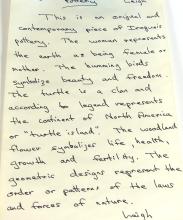 Pottery Leigh
This is an original and
contemporary piece of Iroquois
pottery. The woman represents
the earth as being female or
mother. The humming birds
symbolize beauty and freedom.
The turtle is a clan and
according to legend represents
the continent of North America
or "turtle island". The woodland
flower symbolizes life, health,
growth and fertility. The
geometric designs represent the
order or patterns of the laws
and forces of nature.
Leigh